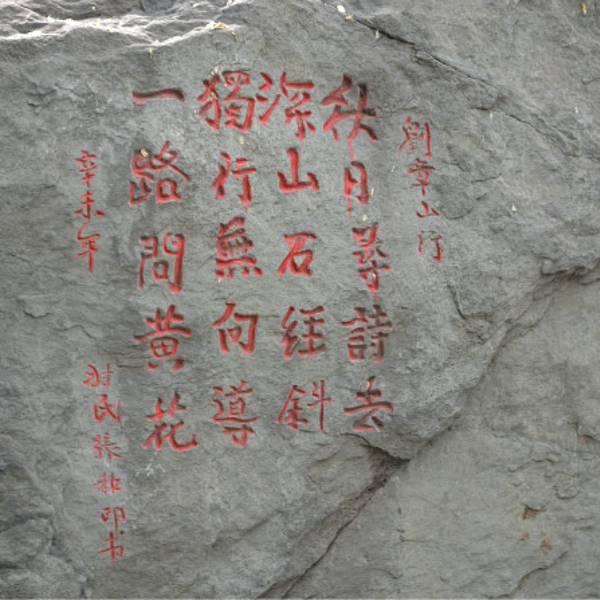 劉章山行
秋日尋詩去
深山石径斜
獨行無向導
一路問黄花
辛未年
村民張印书